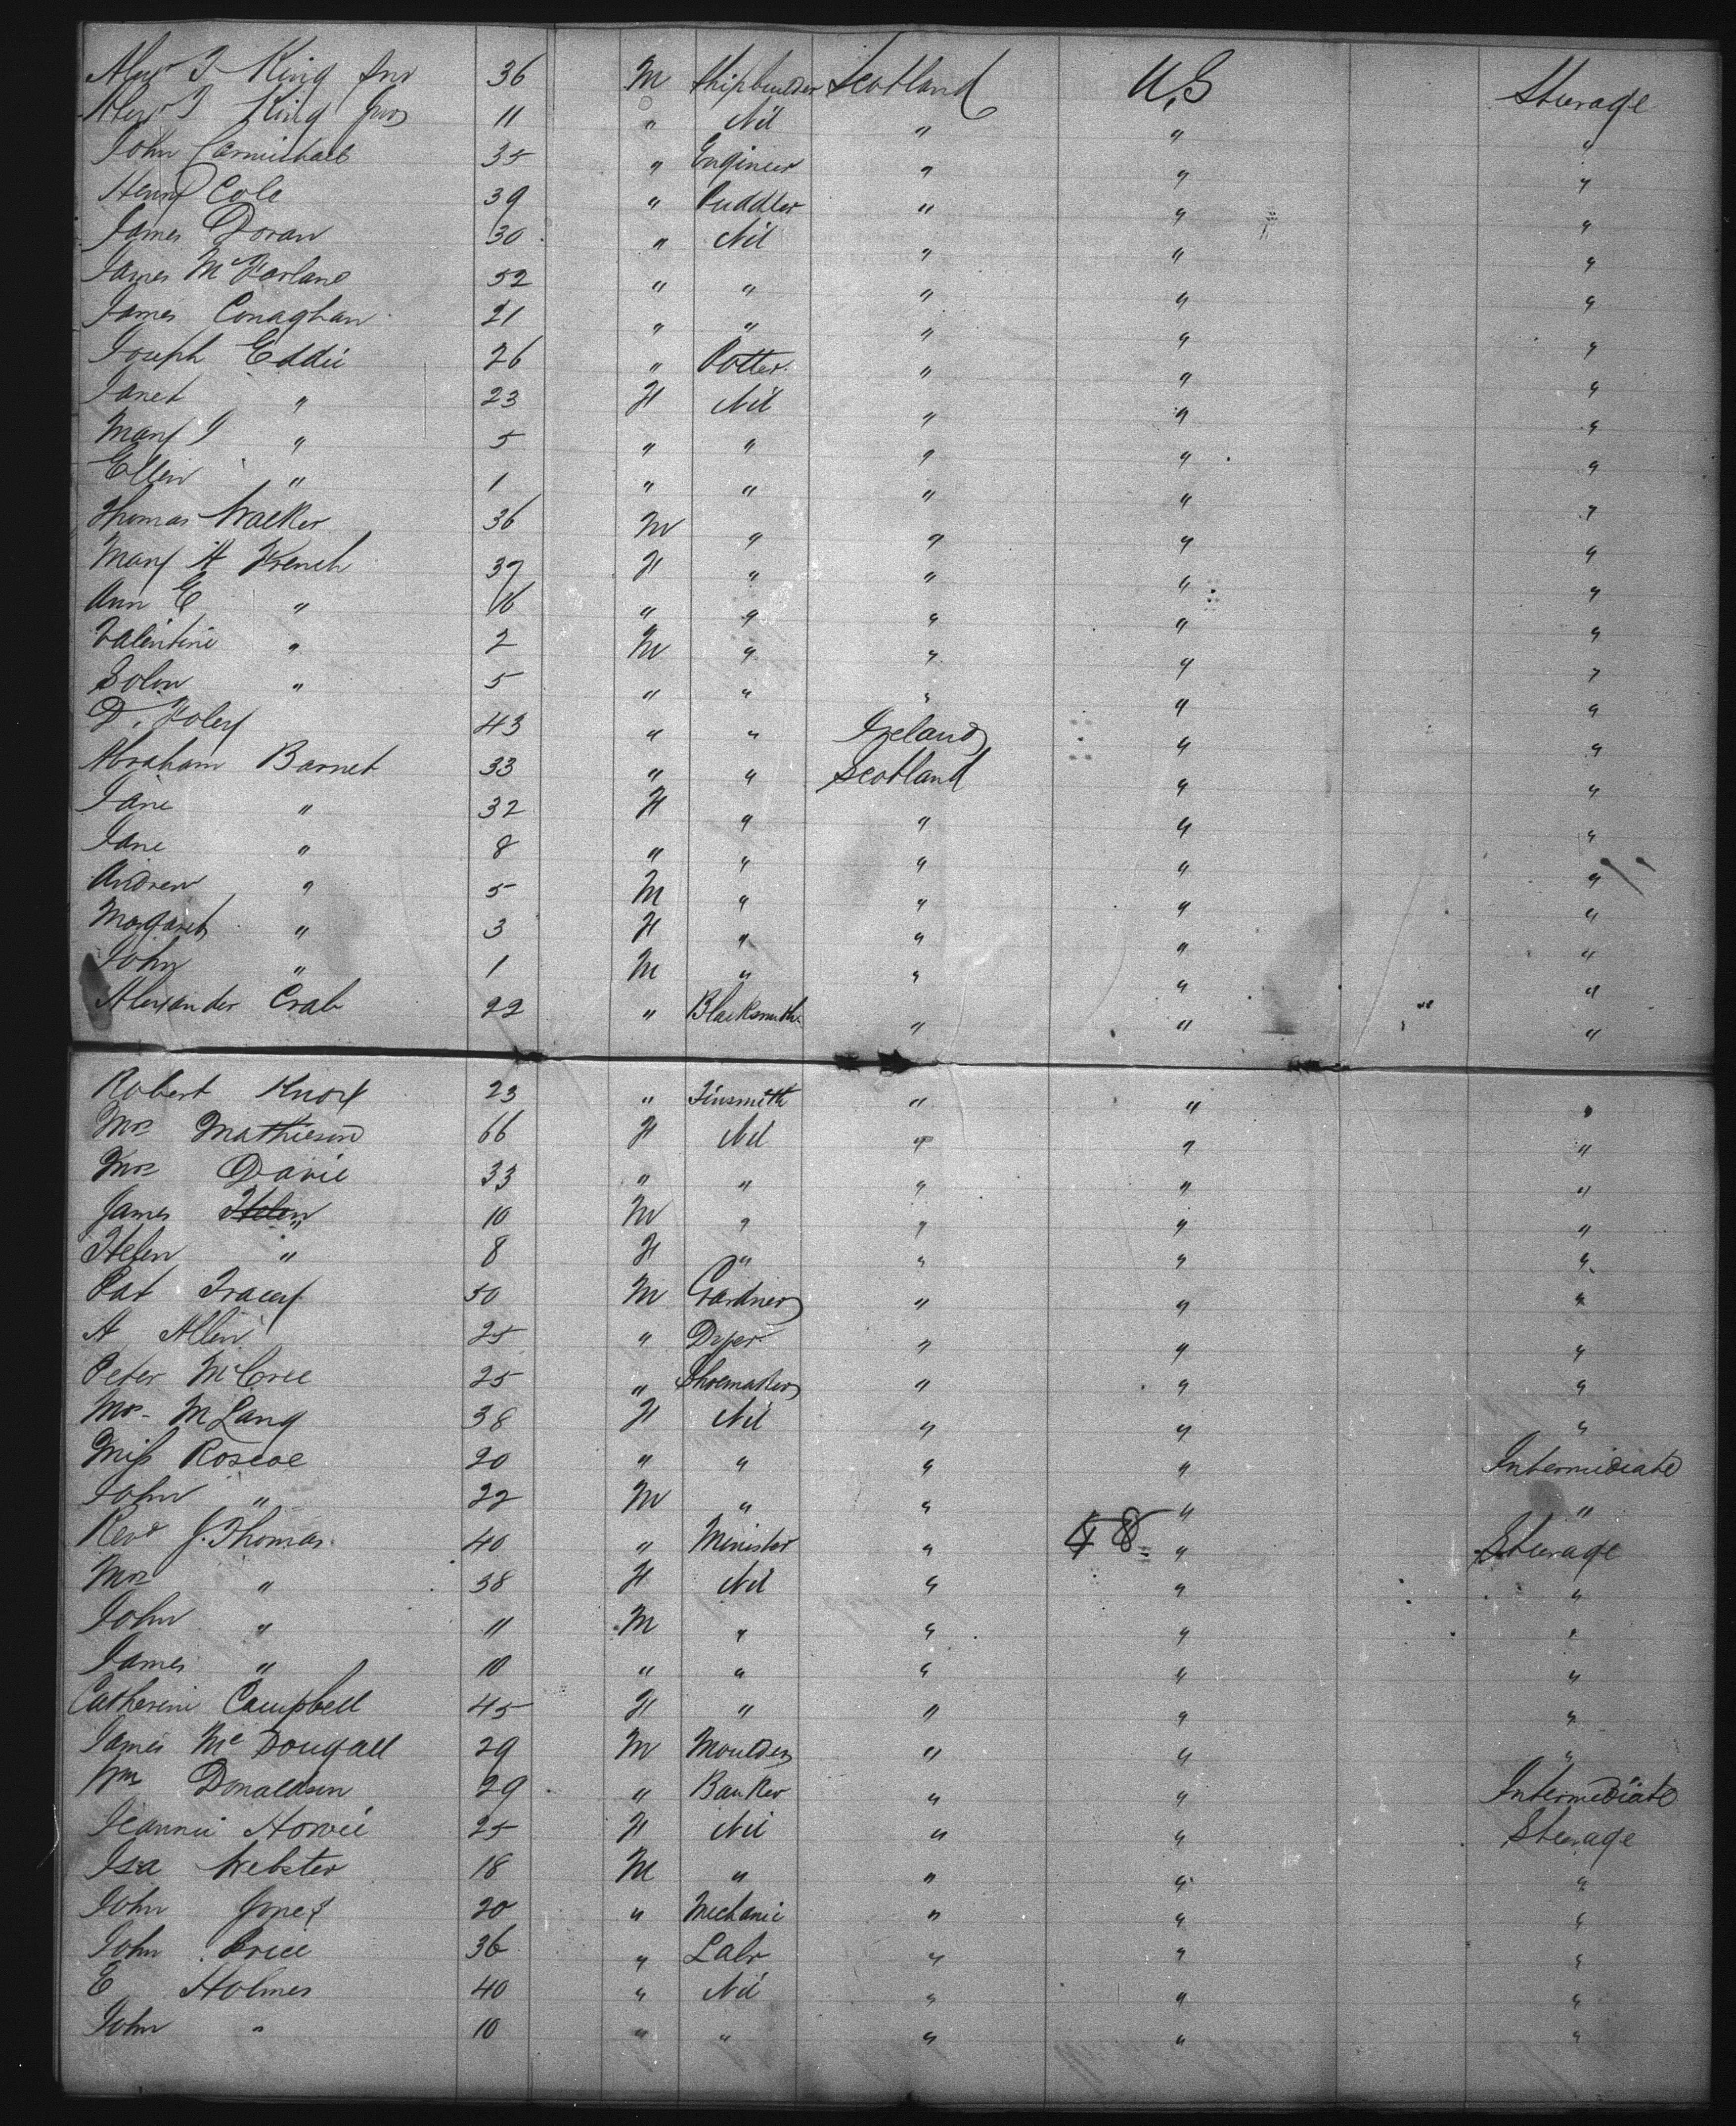 Alexr T King Snr 36 M Shipbuilder Scotland U,S Sterage
Alexr T King Jnr 11 " Nil " " "
John Carmichael 35 " Engineer " " "
Henry Cole 39 " Puddler " " "
James Doran 30 " Nil " " "
James McFarlane 52 " " " " "
James Conaghan 21 " " " " "
Joseph Eddie 26 " Potter " " "
Janet " 23 F Nil " " "
Mary J " 5 " " " " "
Ellen " 1 " " " " "
Thomas Walker 36 M " " " "
Mary A French 37 F " " " "
Ann E " 16 " " " " "
Valentine " 2 M " " " "
Solon " 5 " " " " "
D. Foley 43 " " Ireland " "
Abraham Barnet 33 " " Scotland " "
Jane " 32 F " " " "
Jane " 8 " " " " "
Andrew " 5 M " " " "
Margaret " 3 F " " " "
John " 1 M " " " "
Alexander Crab 22 " Blacksmith " " "
Robert Knox 23 " Tinsmith " " "
Mrs Mathieson 66 F Nil " " "
Mrs Davie 33 " " " " "
James Helen " 10 M " " " "
Helen " 8 F " " " "
Pat Tracey 50 M Gardner " " "
A Allen 25 " Dyer " " "
Peter McCree 25 " Shoemaker " " "
Mrs M Lang 38 F Nil " " "
Miss Roscoe 20 " " " " Intermidiate
John " 22 M " " " "
Revd J. Thomas 40 " Minister " 48 " Sterage
Mrs " 38 F Nil " " "
John " 11 M " " " "
James " 10 " " " " "
Catherine Campbell 45 F " " " "
James McDougall 29 M Moulder " " "
Wm Donaldson 29 " Banker " " Intermediate
Jeannie Howie 25 F Nil " " Sterage
Isa Webster 18 M " " " "
John Jones 20 " Mechanic " " "
John Price 36 " Labr " " "
E Holmes 40 " Nil " " "
John " 10 " " " " "